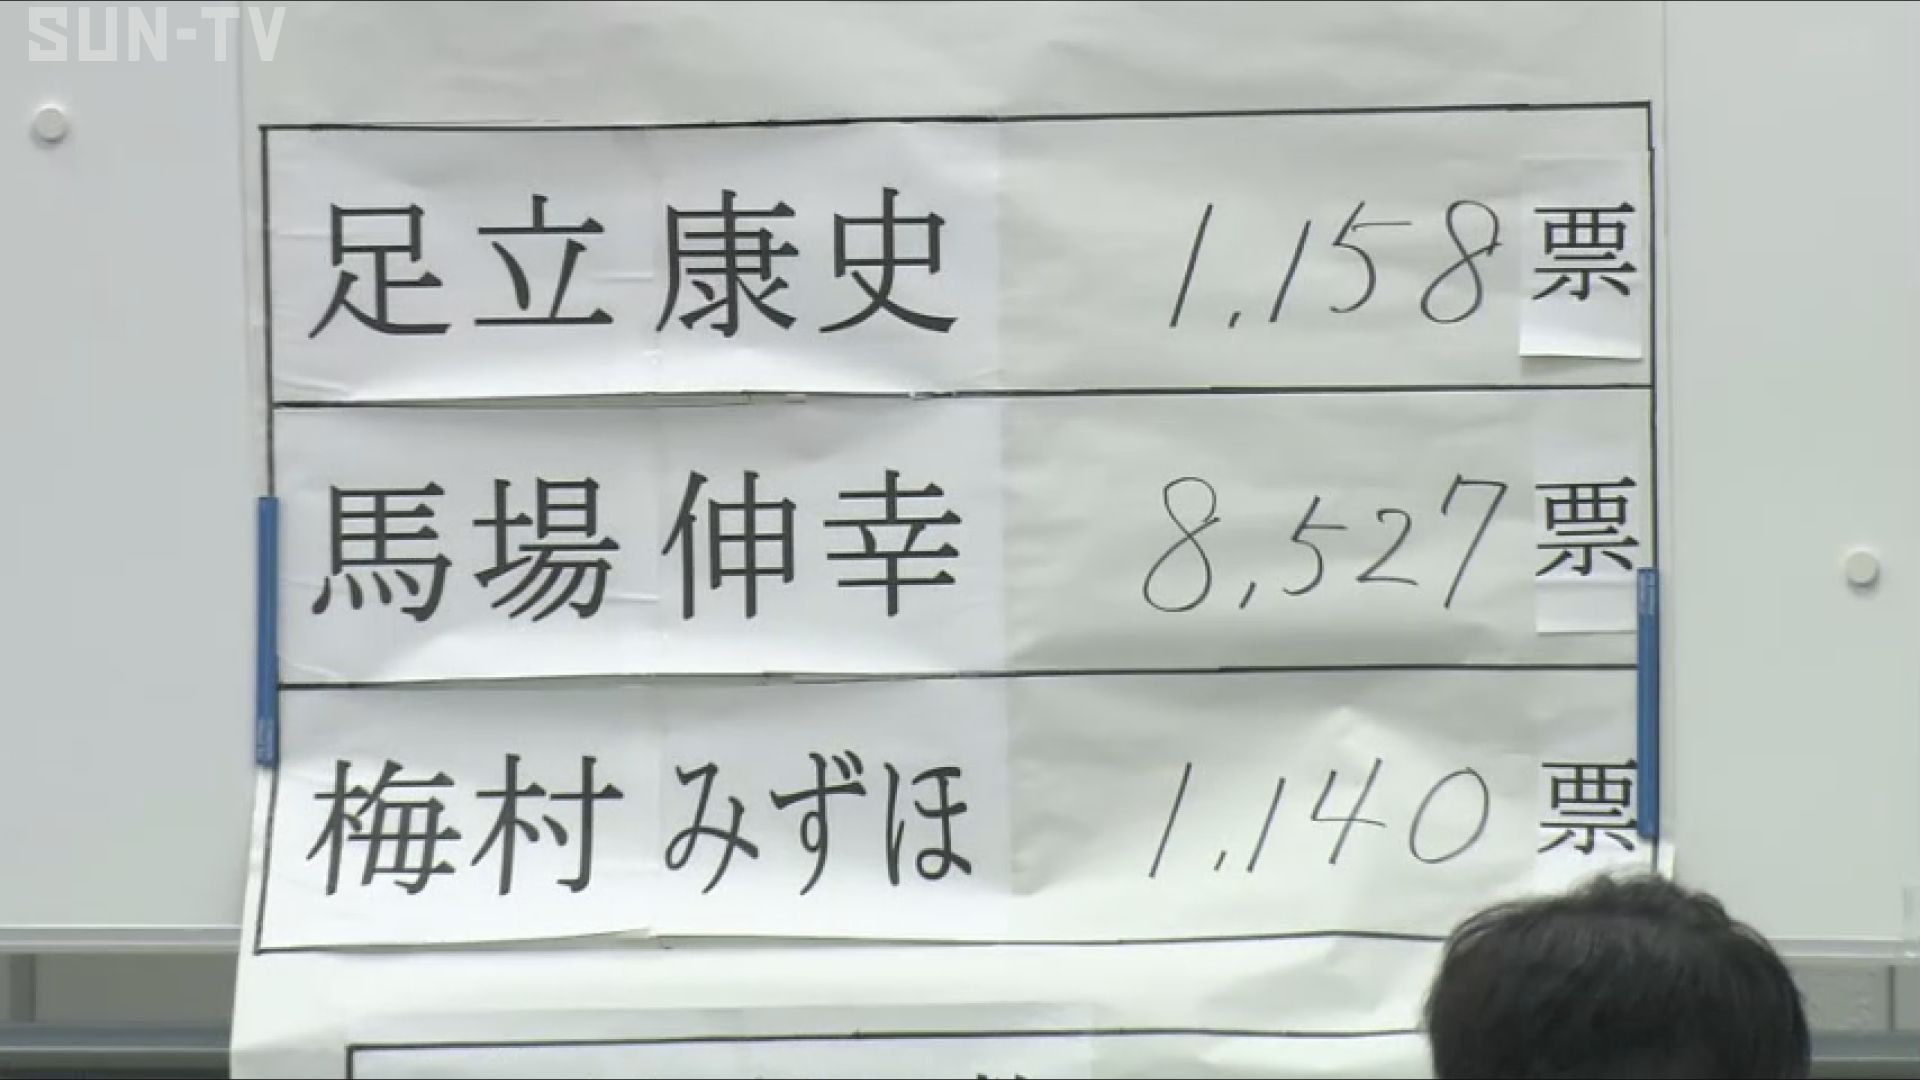 SUN-TV
足立康史 1,158票
馬場伸幸 8,527票
梅村みずほ 1,140票